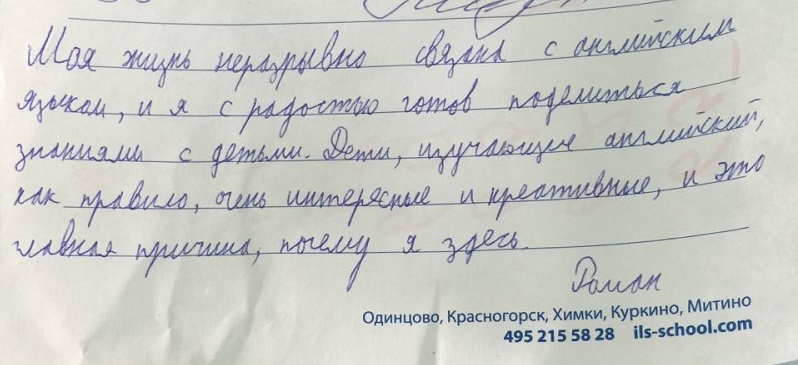 Моя жизнь неразрывно связана с английским
языком, и я с радостью готов поделиться
знаниями с детьми. Дети, изучающие английский,
как правило, очень интересные и креативные, и это
главная причина, почему я здесь.
Роман
Одинцово, Красногорск, Химки, Куркино, Митино
495 215 58 28 ils-school.com